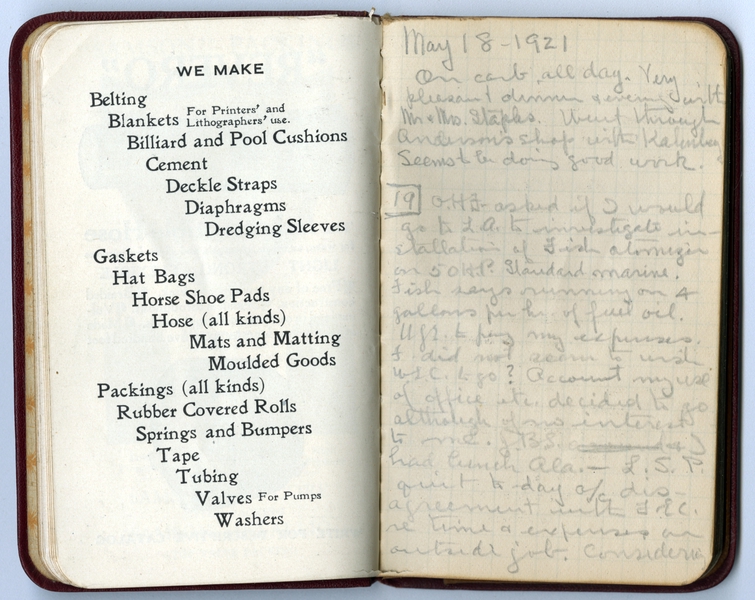 WE MAKE
Belting
Blankets For Printers' and Lithographers' use.
Billiard and Pool Cushions
Cement
Deckle Straps
Diaphragms
Dredging Sleeves
Gaskets
Hat Bags
Horse Shoe Pads
Hose (all kinds)
Mats and Matting
Moulded Goods
Packings (all kinds)
Rubber Covered Rolls
Springs and Bumpers
Tape
Tubing
Valves For Pumps
Washers
May 18-1921
On carb. all day. Very
pleasant dinner & evening with
Mr & Mrs. Staples. Went through
Anderson's shop with
Seems to be doing good work.
19 asked if I would
go to L.A. to investigate in-
stallation of Fish atomizer
on 50 H.P. Standard marine.
Fish says running on 4
gallons per hr. of fuel oil.
to pay my expenses.
did not seem to wish
to go? Account my use
of office etc. decided to go
although of no interest
to me. I
had lunch Ala. — L.S.P.
quit to-day a/c dis-
agreement with
re time & expenses on
outside job. Considering